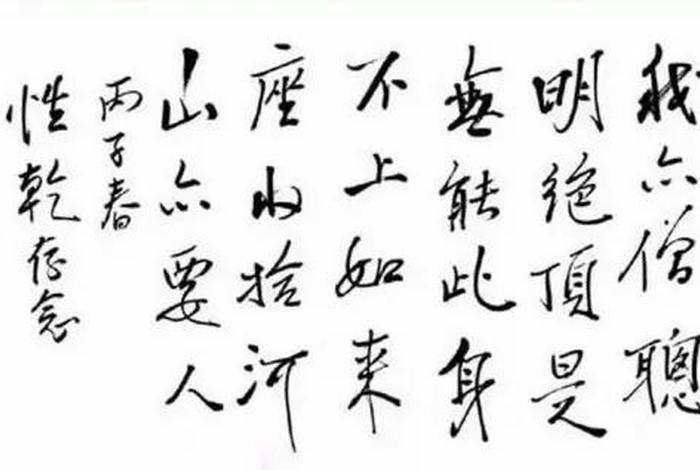 我亦僧聰
明絕頂是
無能此身
不上如來
座收拾河
山亦要人
丙子春
性乾存念